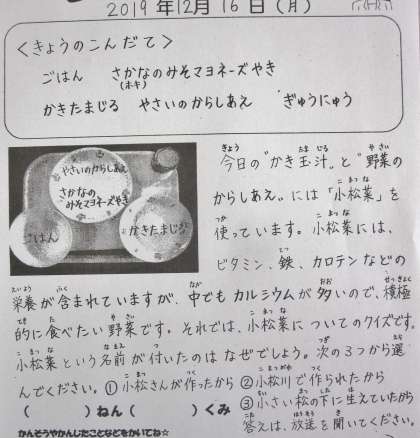 2019年12月16日(月)
<きょうのこんだて>
ごはん さかなのみそマヨネーズやき
(ホキ)
かきたまじる やさいのからしあえ ぎゅうにゅう
やさいのからしあえ
さかなの
みそマヨネーズやき
ごはん
かきたまじる
今日の"かき玉汁"と"野菜の
からしあえ"には「小松菜」を
使っています。小松菜には、
ビタミン、鉄、カロテンなどの
栄養が含まれていますが、中でもカルシウムが多いので、積極
的に食べたい野菜です。それでは、小松菜についてのクイズです。
小松菜という名前が付いたのはなぜでしょう。次の3つから選
んでください。①小松さんが作ったから ②小松川で作られたから
③小さい松の下に生えていたから
( )ねん( )くみ
答えは、放送を聞いてください。
かんそうやかんじたことなどをかいてね☆